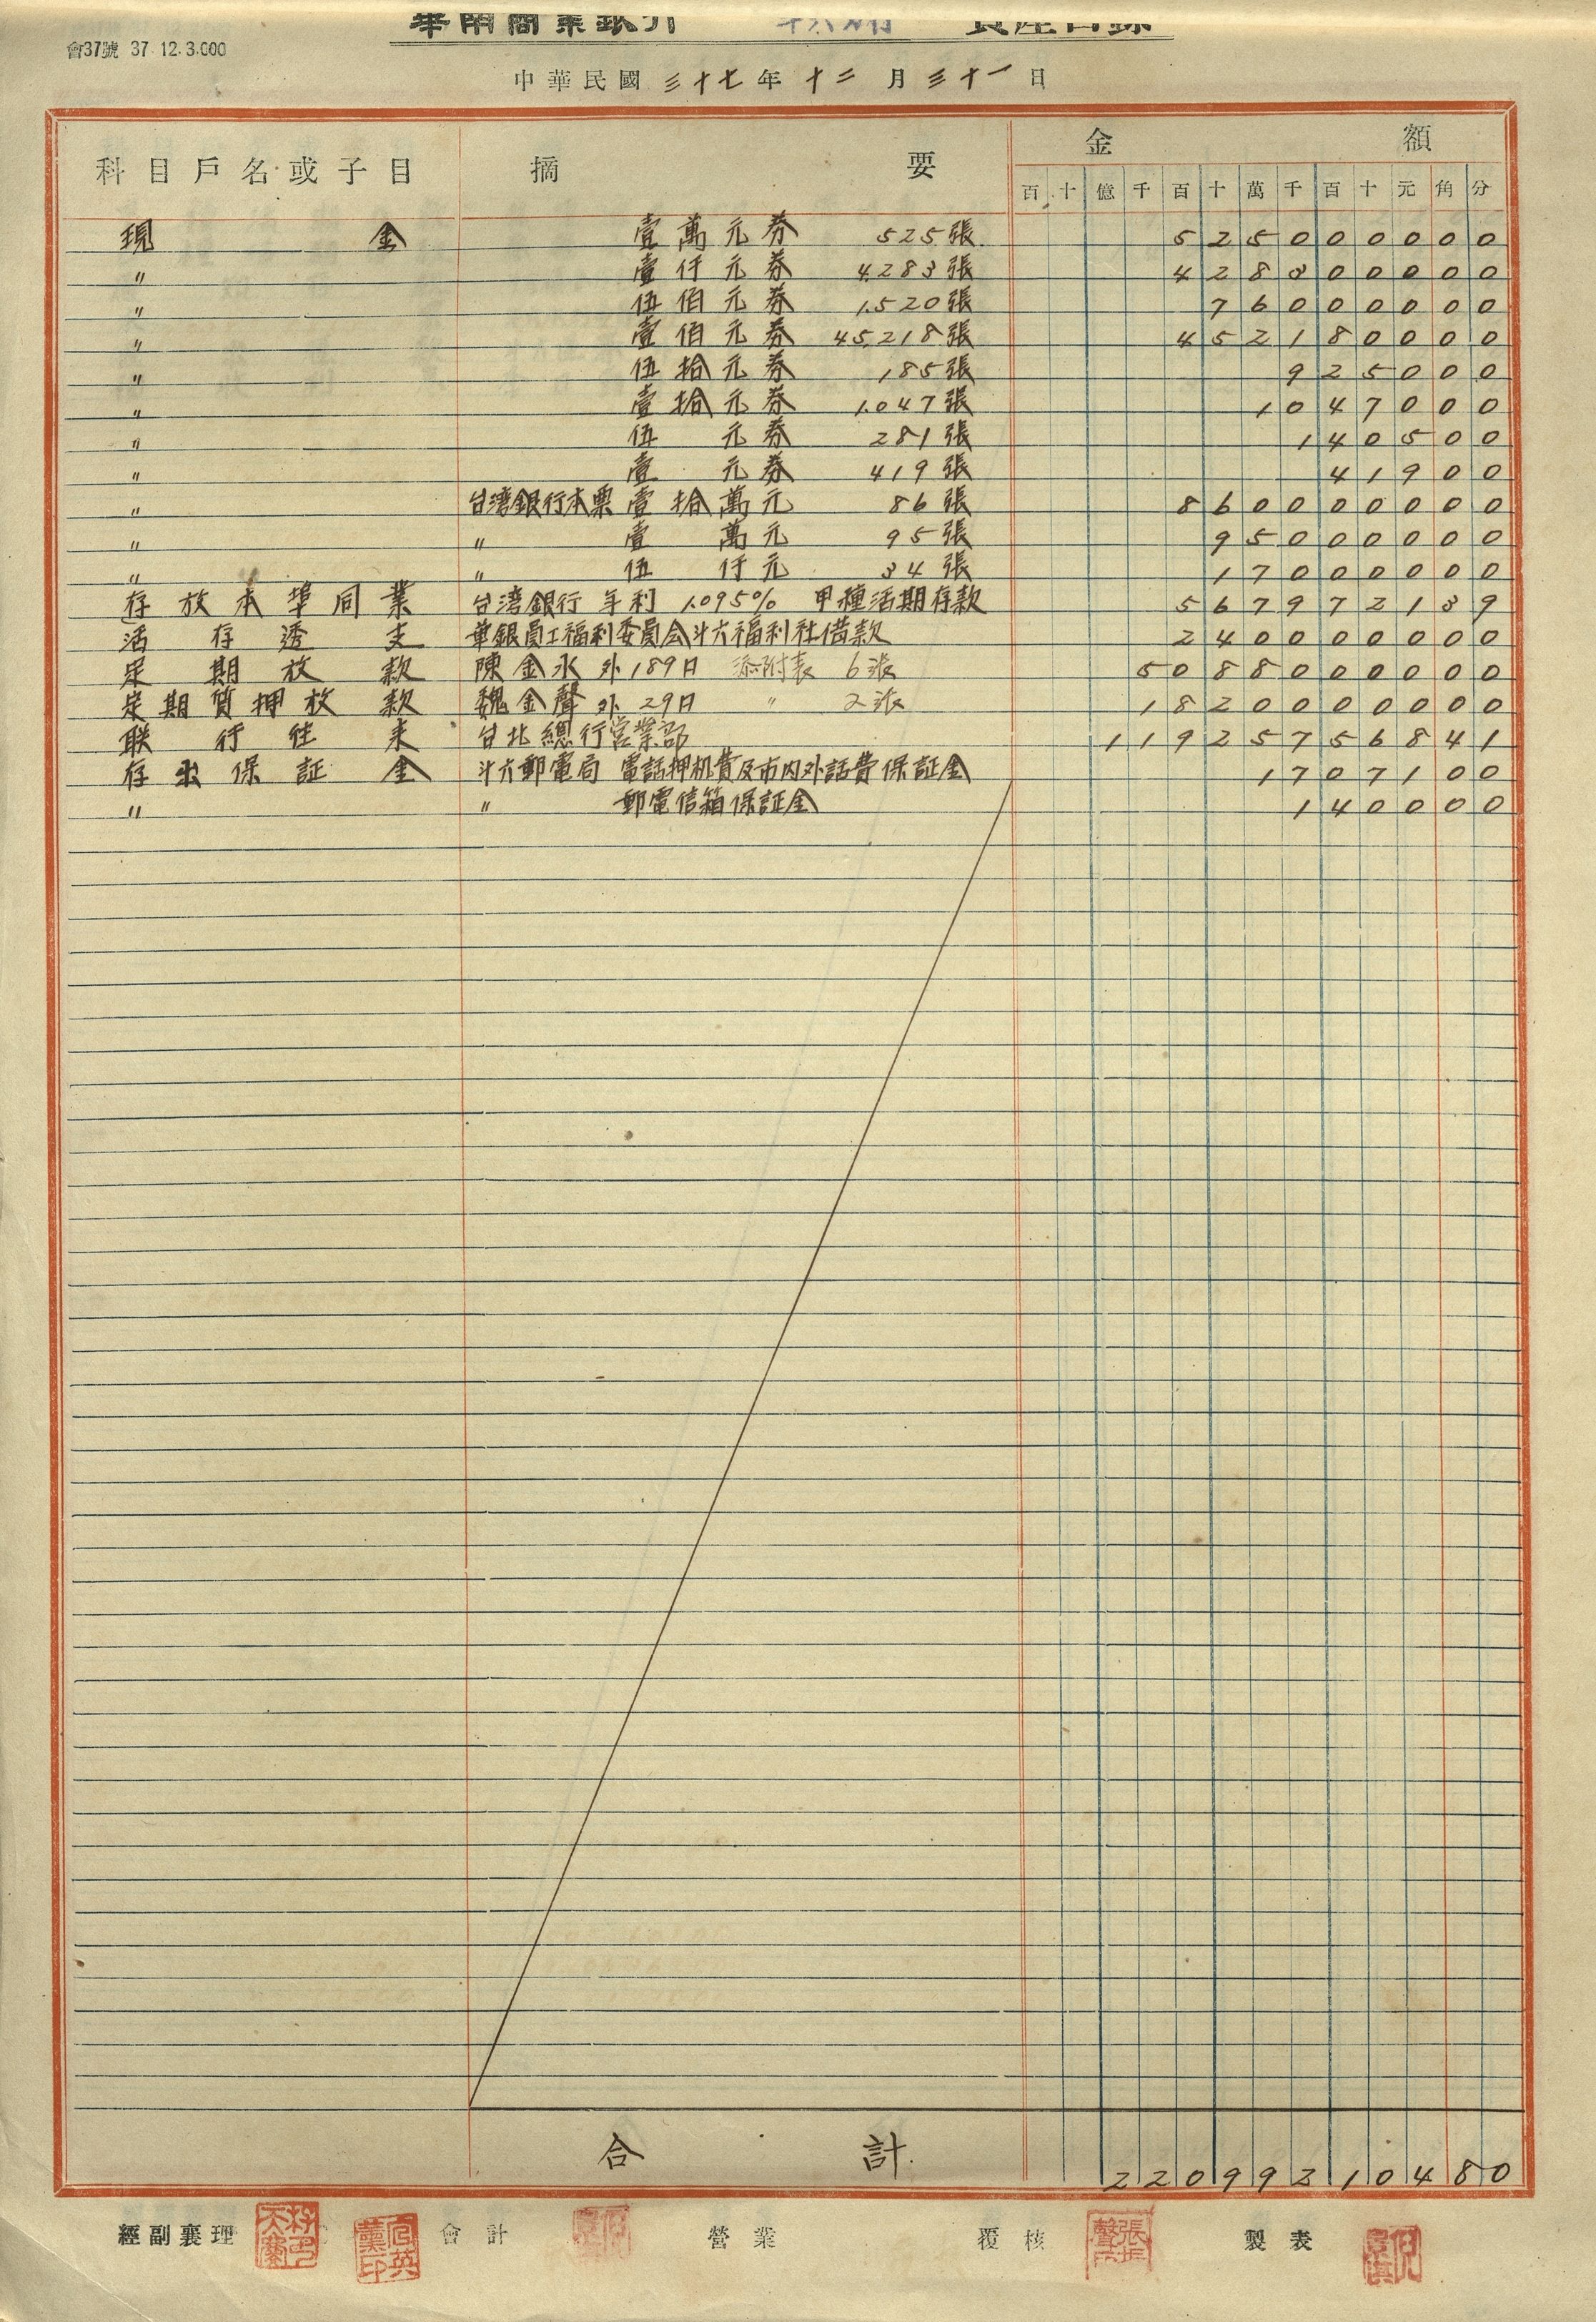 華南商業銀行 斗六分行 資產目錄
會37號 37.12.3.000
中華民國三十七年十二月三十一日
科目戶名或子目 摘要 金額
百十億千百十萬千百十元角分
現金 壹萬元券 525張 525000000
〃 壹仟元券 4.283張 428300000
〃 伍佰元券 1.520張 76000000
〃 壹佰元券 45.218張 452180000
〃 伍拾元券 185張 925000
〃 壹拾元券 1.047張 1047000
〃 伍元券 281張 140500
〃 壹元券 419張 41900
〃 台湾銀行本票 壹拾萬元 86張 860000000
〃 〃 壹萬元 95張 95000000
〃 〃 伍仟元 34張 17000000
存放本埠同業 台湾銀行 年利 1.095% 甲種活期存款 567972139
活存透支 華銀員工福利委員会斗六福利社借款 240000000
定期放款 陳金水 外189口 添附表 6張 5088000000
定期質押放款 魏金聲 外29口 〃 2張 1820000000
联行往来 台北總行営業部 11925756841
存出保証金 斗六郵電局 電話押机費及市内外話費保証金 1707100
〃 〃 郵電信箱保証金 140000
合計 22099210480
經副襄理 會計 營業 覆核 製表